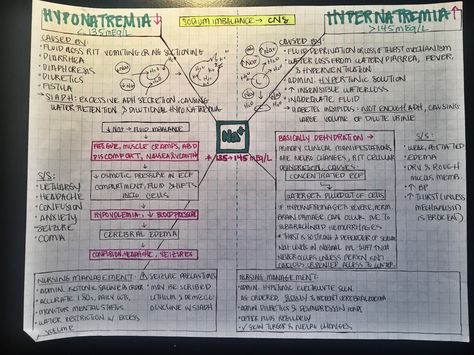 HYPONATREMIA ↓
< 135 mEq/L
SODIUM IMBALANCE → CNS
HYPERNATREMIA ↑
> 145 mEq/L
CAUSED BY:
• FLUID LOSS R/T VOMITING OR NG SUCTIONING
• DIARRHEA
• DIAPHORESIS
• DIURETICS
• FISTULA
→ SIADH: EXCESSIVE ADH SECRETION, CAUSING
WATER RETENTION → DILUTIONAL HYPONATREMIA
CAUSED BY:
• FLUID DEPRIVATION OR LOSS OF THIRST MECHANISM
• WATER LOSS FROM WATERY DIARRHEA, FEVER,
& HYPERVENTILATION
• ADMIN. HYPERTONIC SOLUTION
• ↑ INSENSIBLE WATER LOSS
• INADEQUATE FLUID
• DIABETES INSIPIDUS: NOT ENOUGH ADH, CAUSING
LARGE VOLUME OF DILUTE URINE
Na+
135-145 mEq/L
↓ Na+ → FLUID IMBALANCE
FATIGUE, MUSCLE CRAMPS, ABD
DISCOMFORT, NAUSEA/VOMITING
↓ OSMOTIC PRESSURE IN ECF
COMPARTMENT, FLUID SHIFTS
INTO CELLS
HYPOVOLEMIA, ↓ BLOOD PRESSURE
CEREBRAL EDEMA
CONFUSION, HEADACHE, SEIZURES
S/S:
• LETHARGY
• HEADACHE
• CONFUSION
• ANXIETY
• SEIZURE
• COMA
BASICALLY DEHYDRATION
PRIMARY CLINICAL MANIFESTATIONS
ARE NEURO CHANGES, R/T CELLULAR
DEHYDRATION, CAUSES:
CONCENTRATED ECF
WATER GETS PULLED OUT OF CELLS
• IF HYPERNATREMIA GETS SEVERE, PERM
BRAIN DAMAGE CAN OCCUR DUE TO
SUBARACHNOID HEMORRHAGES
* THIRST IS SO STRONG A DEFENDER OF SERUM
Na+ LEVELS IN NORMAL PPL THAT ↑Na+
NEVER OCCURS UNLESS PERSON IS UNC
OR DENIED ACCESS TO WATER
S/S:
• WEAK, AGITATED
• EDEMA
• DRY & ROUGH
MUCUS MEMB.
• ↑ BP
• ↑ THIRST (UNLESS
MECHANISM
IS BROKEN)
NURSING MANAGEMENT:
• ADMIN. ISOTONIC SALINE AS ORDER
• ACCURATE I&Os, DAILY WTS
• MONITOR MENTAL STATUS
• WATER RESTRICTION W/ EXCESS
VOLUME
SEIZURE PRECAUTIONS
• MAY BE PRESCRIBED
LITHIUM & DEMECLO-
CYCLINE W/ SIADH
NURSING MANAGEMENT:
• ADMIN. HYPOTONIC ELECTROLYTE SOLN
AS ORDERED, SLOWLY TO PREVENT CEREBRAL EDEMA
• ADMIN DIURETICS & DESMOPRESSIN
• OFFER FLUIDS REGULARLY
• ✓ SKIN TURGOR & NEURO CHANGES